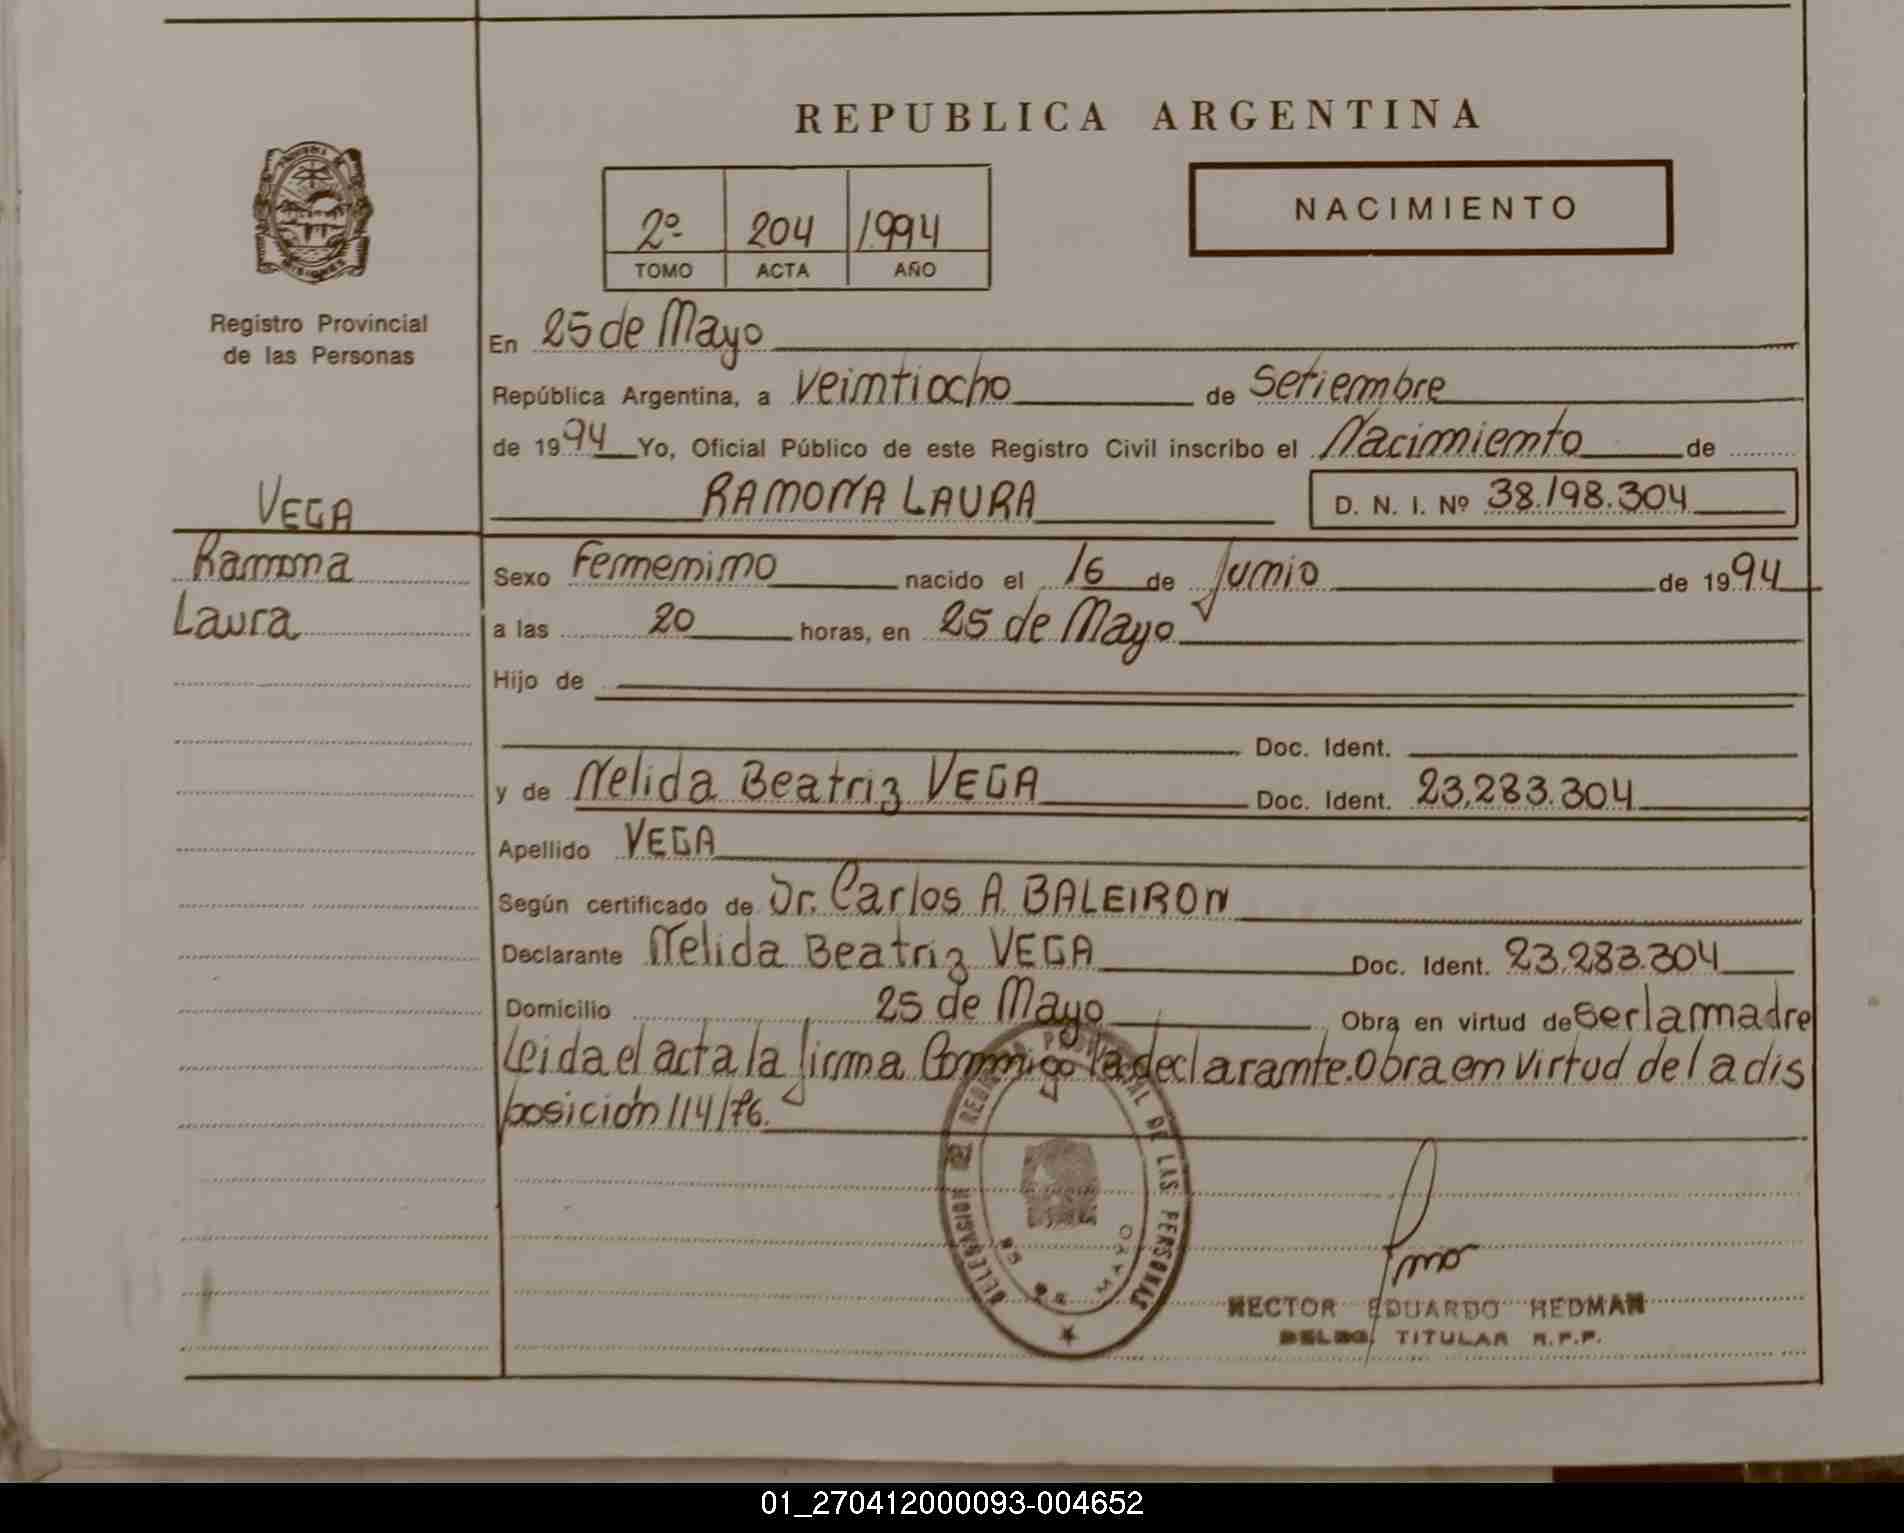 REPUBLICA ARGENTINA
2º 204 1994
TOMO ACTA AÑO
NACIMIENTO
Registro Provincial
de las Personas
VEGA
Ramona
Laura
En 25 de Mayo
República Argentina, a veintiocho de Setiembre
de 1994 Yo, Oficial Público de este Registro Civil inscribo el Nacimiento de
RAMONA LAURA D. N. I. Nº 38.198.304
Sexo Femenino nacido el 16 de Junio de 1994
a las 20 horas, en 25 de Mayo
Hijo de
Doc. Ident.
y de Nelida Beatriz VEGA Doc. Ident. 23.283.304
Apellido VEGA
Según certificado de Dr. Carlos A. BALEIRON
Declarante Nelida Beatriz VEGA Doc. Ident. 23.283.304
Domicilio 25 de Mayo Obra en virtud de ser la madre
Leida el acta la firma Conmigo la declarante. Obra en virtud de la dis
posición 114/76.
DELEGACION REGISTRO PROVINCIAL DE LAS PERSONAS
25 DE MAYO
HECTOR EDUARDO HEDMAN
DELEG. TITULAR R.P.P.
01_270412000093-004652